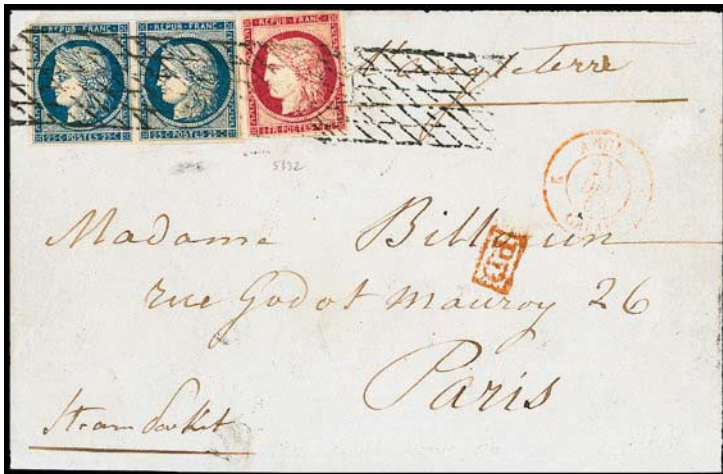 REPUB·FRANC· REPUB·FRANC· REPUB·FRANC·
25·C·POSTES·25·C· 25·C·POSTES·25·C· 1·FR·POSTES·1·FR
d'Angleterre
5732
ANGL.
Madame Billouin
P.D.
rue Godot Mauroy 26
Paris
Steam Packet